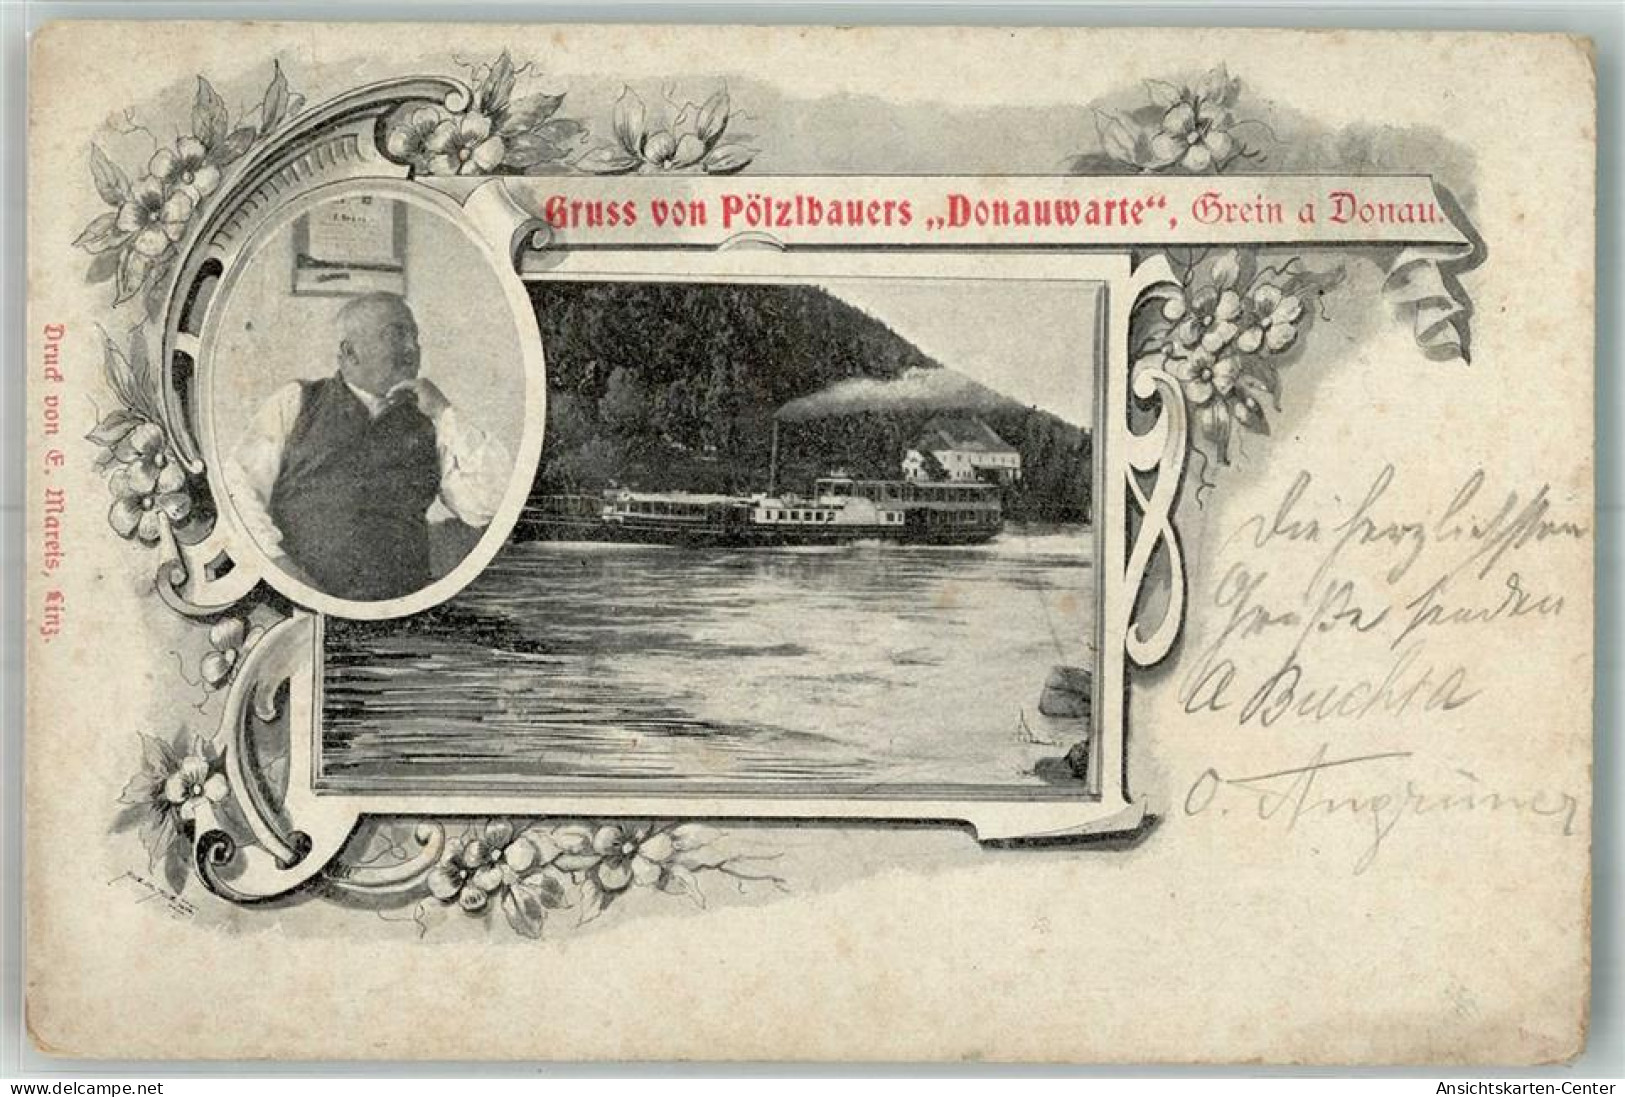 Gruss von Pölzlbauers „Donauwarte“, Grein a Donau.
Druck von E. Mareis, Linz.
Die herzlichsten
Grüße senden
A Buchta
O. Angrüner
www.delcampe.net
Ansichtskarten-Center